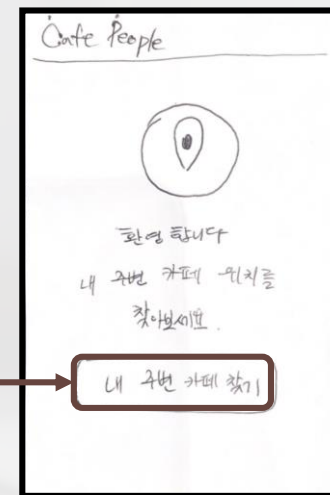 Cafe People
환영 합니다
내 주변 카페 위치를
찾아보세요.
내 주변 카페 찾기